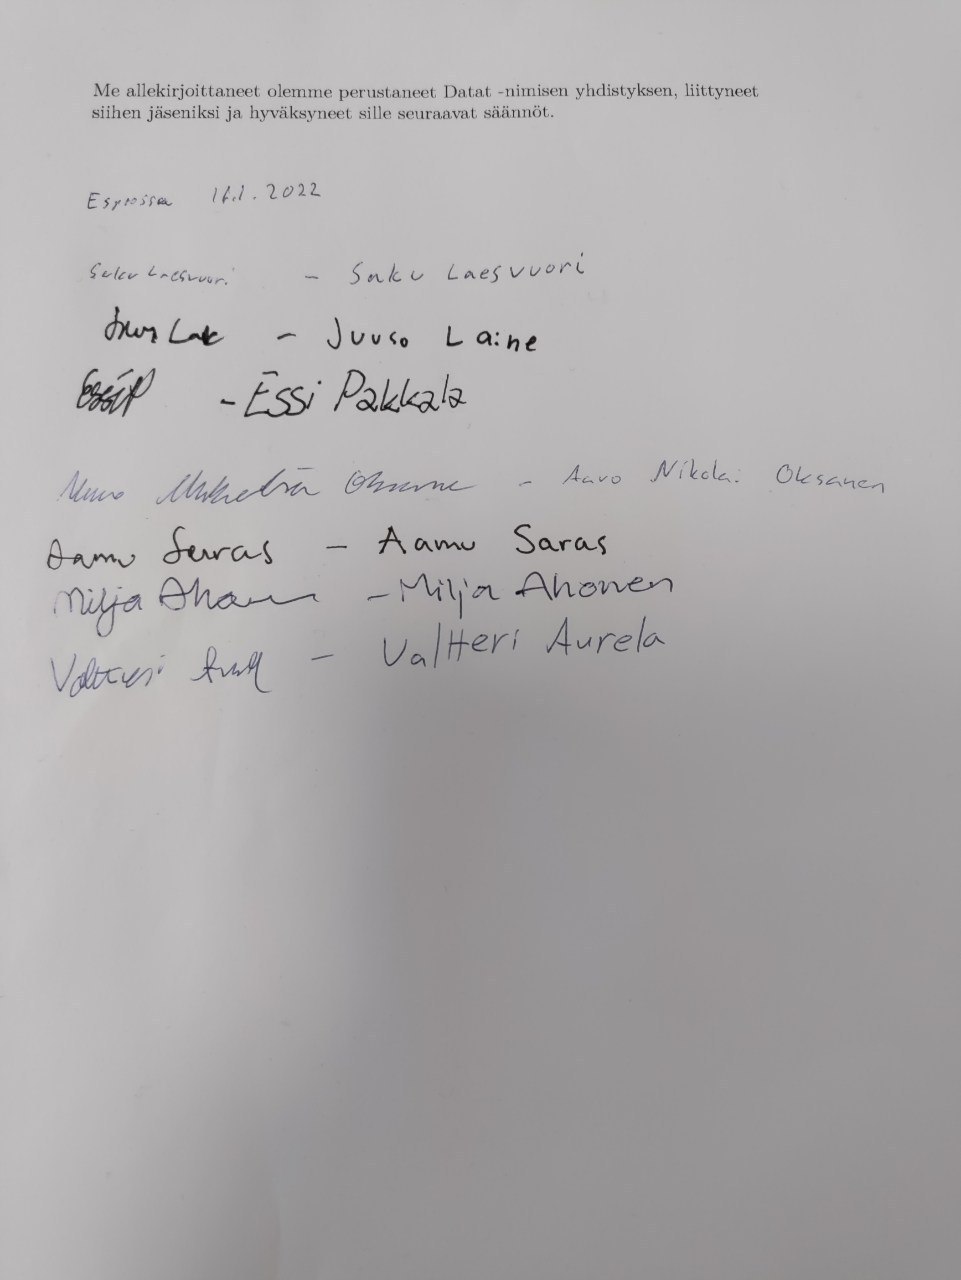 Me allekirjoittaneet olemme perustaneet Datat -nimisen yhdistyksen, liittyneet
siihen jäseniksi ja hyväksyneet sille seuraavat säännöt.
Espoossa 17.1.2022
Saku Laesvuori - Saku Laesvuori
- Juuso Laine
Essi P - Essi Pakkala
Oksanen - Aaro Nikolai Oksanen
Aamu Saras - Aamu Saras
Milja Ahonen - Milja Ahonen
Valtteri - Valtteri Aurela